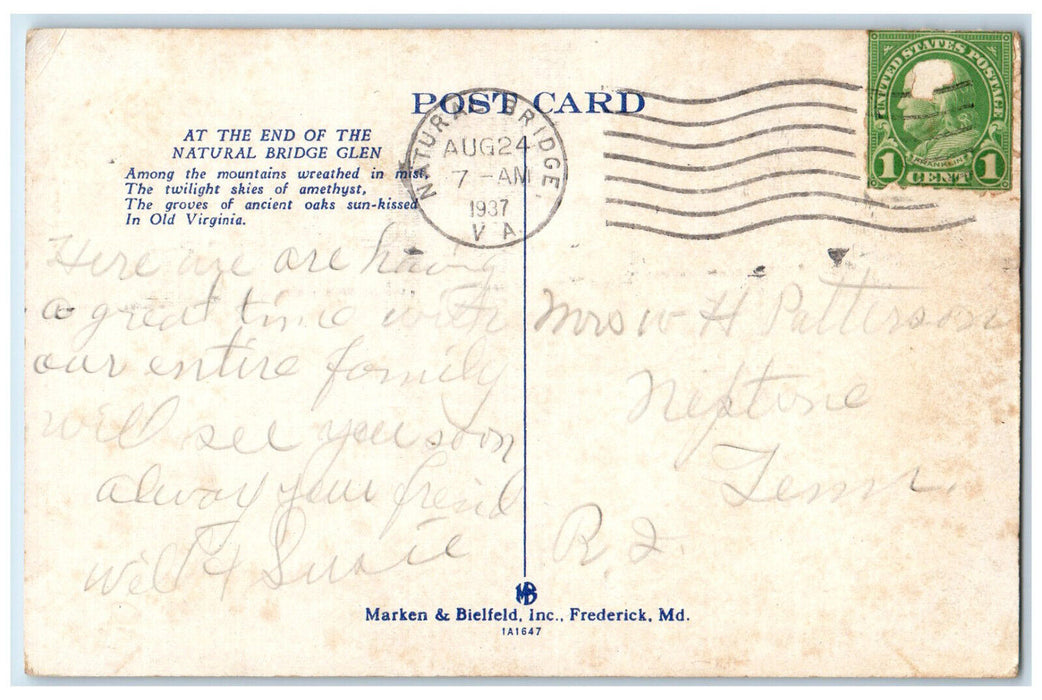 POST CARD
AT THE END OF THE
NATURAL BRIDGE GLEN
Among the mountains wreathed in mist,
The twilight skies of amethyst,
The groves of ancient oaks sun-kissed
In Old Virginia.
NATURAL BRIDGE,
AUG 24
7 -AM
1937
VA
UNITED STATES POSTAGE
FRANKLIN
1 CENT 1
Here we are having
a great time with
our entire family
will see you soon
alway your freind
Will & Susie
Mrs W H Patterson
Neptone
Tenn.
R. 2.
MB
Marken & Bielfeld, Inc., Frederick, Md.
1A1647